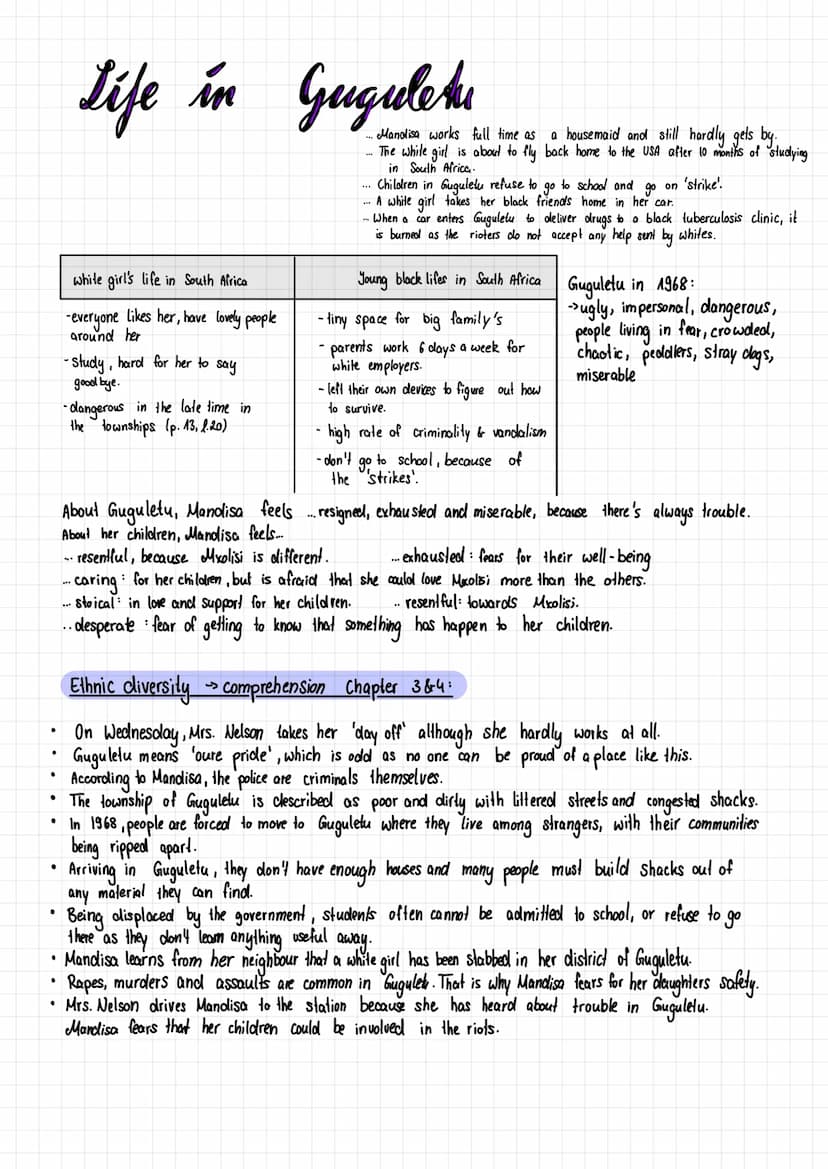 Life in Guguletu
... Mandisa works full time as a housemaid and still hardly gets by.
... The white girl is about to fly back home to the USA after 10 months of studying
in South Africa.
... Children in Guguletu refuse to go to school and go on 'strike'.
... A white girl takes her black friends home in her car.
... When a car enters Guguletu to deliver drugs to a black tuberculosis clinic, it
is burned as the rioters do not accept any help sent by whites.
white girl's life in South Africa
-everyone likes her, have lovely people
around her
-study, hard for her to say
goodbye.
-dangerous in the late time in
the townships (p. 13, l.20)
Young black lifes in South Africa
-tiny space for big family's
- parents work 6 days a week for
white employers.
-left their own devices to figure out how
to survive.
- high rate of criminality & vandalism
-don't go to school, because of
the 'strikes'.
Guguletu in 1968:
→ugly, impersonal, dangerous,
people living in fear, crowded,
chaotic, peddlers, stray dogs,
miserable
About Guguletu, Mandisa feels ...resigned, exhausted and miserable, because there's always trouble.
About her children, Mandisa feels...
... resentful, because Mxolisi is different. ...exhausted: fears for their well-being
... caring: for her children, but is afraid that she could love Mxolisi more than the others.
... stoical: in love and support for her children. .. resentful: towards Mxolisi.
.. desperate: fear of getting to know that something has happen to her children.
Ethnic diversity → comprehension Chapter 3&4:
• On Wednesday, Mrs. Nelson takes her 'day off' although she hardly works at all.
• Guguletu means 'oure pride', which is odd as no one can be proud of a place like this.
• According to Mandisa, the police are criminals themselves.
• The township of Guguletu is described as poor and dirty with littered streets and congested shacks.
• In 1968, people are forced to move to Guguletu where they live among strangers, with their communities
being ripped apart.
• Arriving in Guguletu, they don't have enough houses and many people must build shacks out of
any material they can find.
• Being displaced by the government, students often cannot be admitted to school, or refuse to go
there as they don't learn anything useful away.
• Mandisa learns from her neighbour that a white girl has been stabbed in her district of Guguletu.
• Rapes, murders and assaults are common in Gugulet. That is why Mandisa fears for her daughters safety.
• Mrs. Nelson drives Mandisa to the station because she has heard about trouble in Guguletu.
Mandisa fears that her children could be involved in the riots.